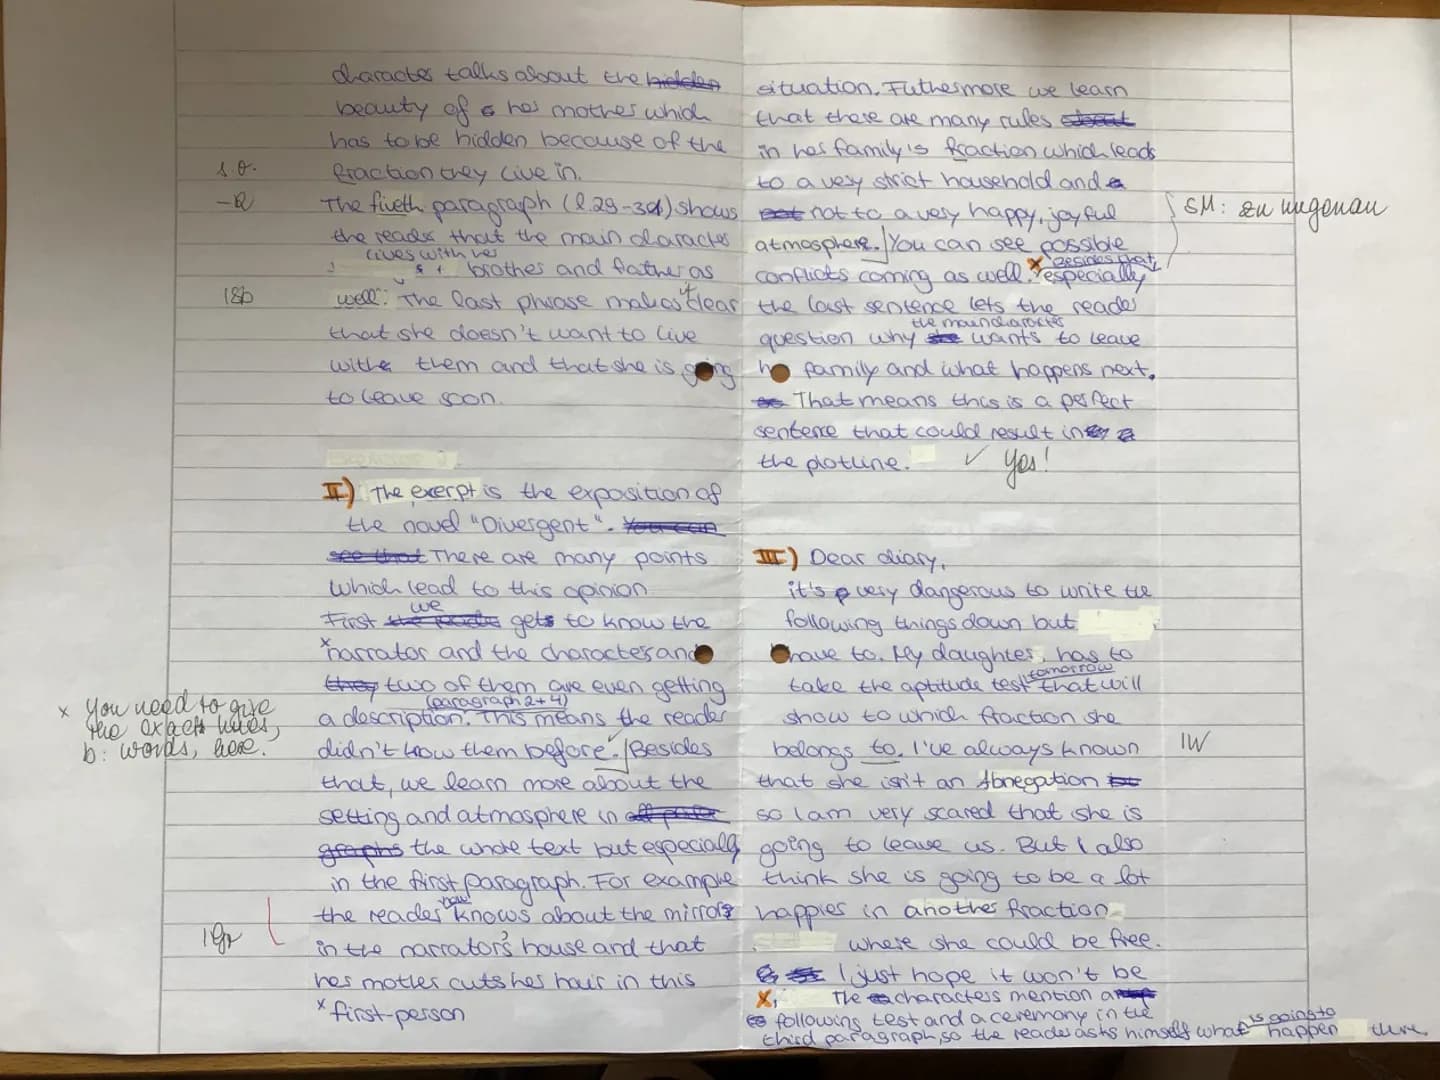 character talks about the hidden
beauty of her mother which
has to be hidden because of the
s.o.
fraction they live in.
-R
The fiveth paragraph (l.29-31) shows
the reader that the main character
lives with her
brother and father as
1Sb
well. The last phrase makes it clear
that she doesn't want to live
with them and that she is going
to leave soon.
II) The exerpt is the exposition of
the novel "Divergent". You can
see that There are many points
which lead to this opinion
we
First the reader gets to know the
*narrator and the character and
they two of them are even getting
(paragraph 2+4)
a description. This means the reader
x You need to give
the exact lines,
b: words, here.
didn't know them before. Besides
that, we learn more about the
setting and atmosphere in all para
graphs the whole text but especially
in the first paragraph. For example
now
the reader knows about the mirrors
1Gr
in the narrator's house and that
her mother cuts her hair in this
*first-person
situation. Futhermore we learn
that there are many rules about
in her family's fraction which leads
to a very strict household and
not to a very happy, joyful
SM: zu ungenau
atmosphere. You can see possible
conflicts coming as well. x besides that, especially
the last sentence lets the reader
the maincharacter
question why she wants to leave
family and what happens next.
That means this is a perfect
sentence that could result in
the plotline. ✓ Yes!
III) Dear diary,
it's very dangerous to write the
following things down but
have to. My daughter has to
tomorrow
take the aptitude test that will
show to which fraction she
belongs to. I've always known
1W
that she isn't an Abnegation
so I am very scared that she is
going to leave us. But I also
think she is going to be a lot
happier in another fraction
where she could be free.
I just hope it won't be
x, The characters mention a
following test and a ceremony in the
is going to
third paragraph, so the reader asks himself what happen there